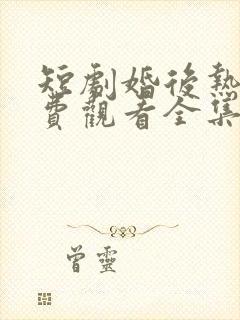 短劇婚後熱
費觀看全集
曾靈